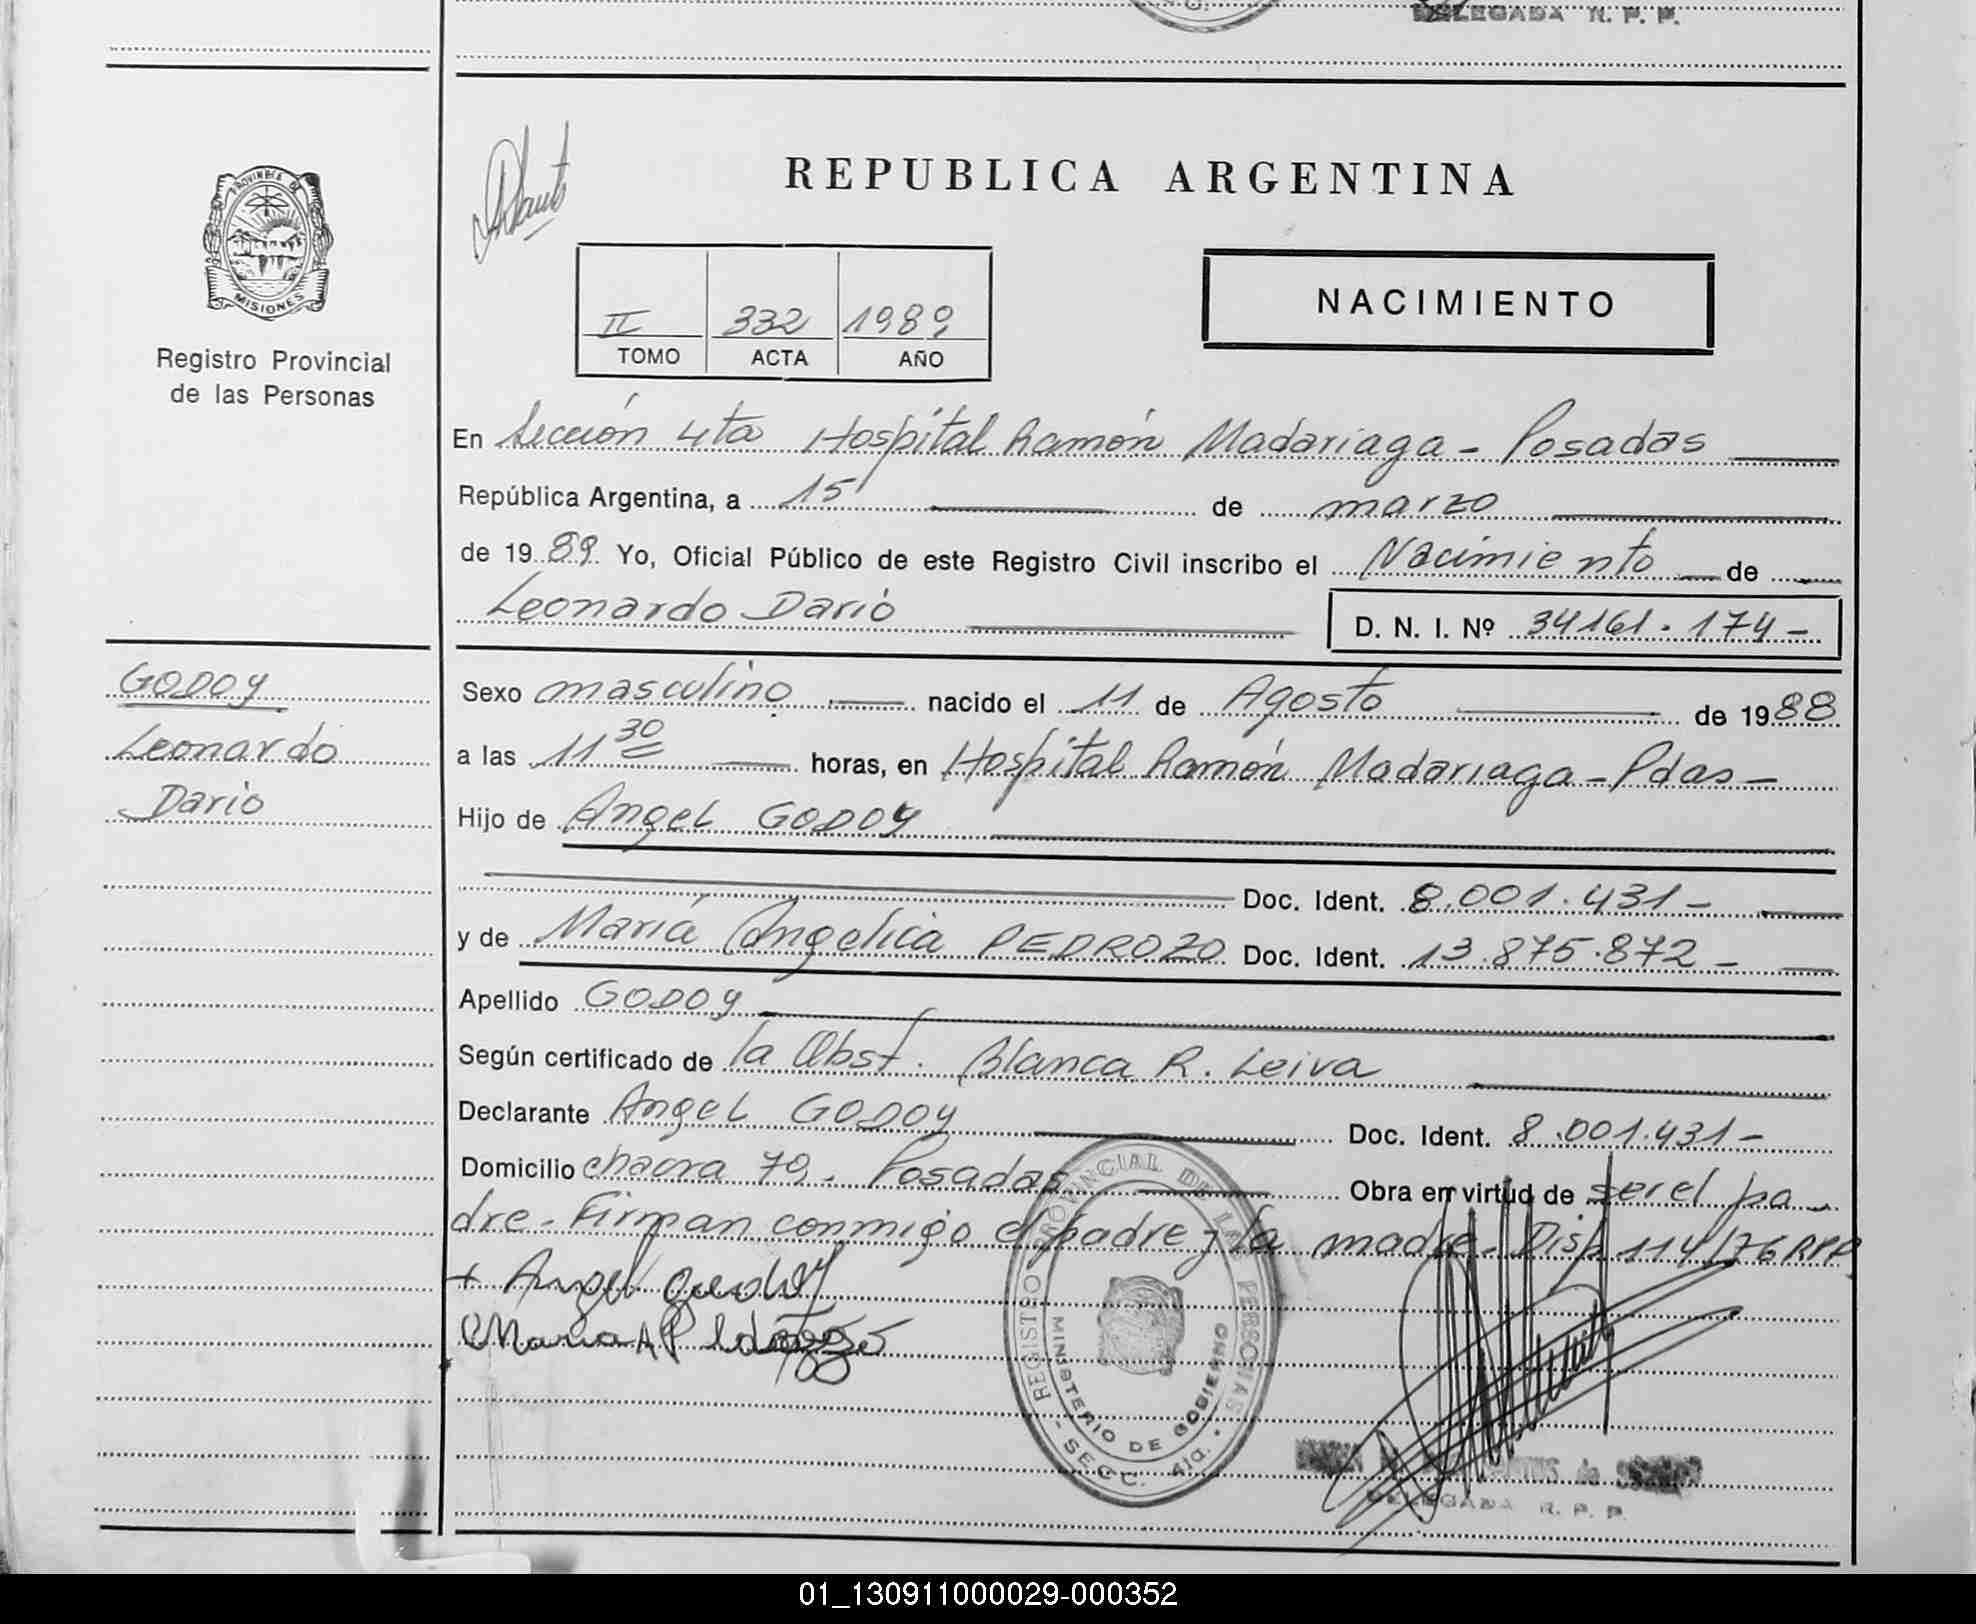 DELEGADA R. P. P.
PROVINCIA DE
MISIONES
Registro Provincial
de las Personas
REPUBLICA ARGENTINA
NACIMIENTO
II 332 1989
TOMO ACTA AÑO
En Sección 4ta Hospital Ramón Madariaga - Posadas
República Argentina, a 15 de marzo
de 19 89 Yo, Oficial Público de este Registro Civil inscribo el Nacimiento de
Leonardo Darió D. N. I. Nº 34161.174-
GODOY
Leonardo
Dario
Sexo masculino nacido el 11 de Agosto de 1988
a las 11 30 horas, en Hospital Ramón Madariaga - Pdas -
Hijo de Angel GODOY
Doc. Ident. 8.001.431-
y de Mariá Angelica PEDROZO Doc. Ident. 13.875.872-
Apellido GODOY
Según certificado de la Obst. Blanca R. Leiva
Declarante Angel GODOY Doc. Ident. 8.001.431-
Domicilio chacra 79. Posadas Obra en virtud de ser el pa-
dre. Firman conmigo el padre y la madre. Disp. 114/76 RPP
+ Angel
Maria A P
REGISTRO PROVINCIAL DE LAS PERSONAS
MINISTERIO DE GOBIERNO
- SECC. 4ta. -
DELEGADA R. P. P.
01_130911000029-000352